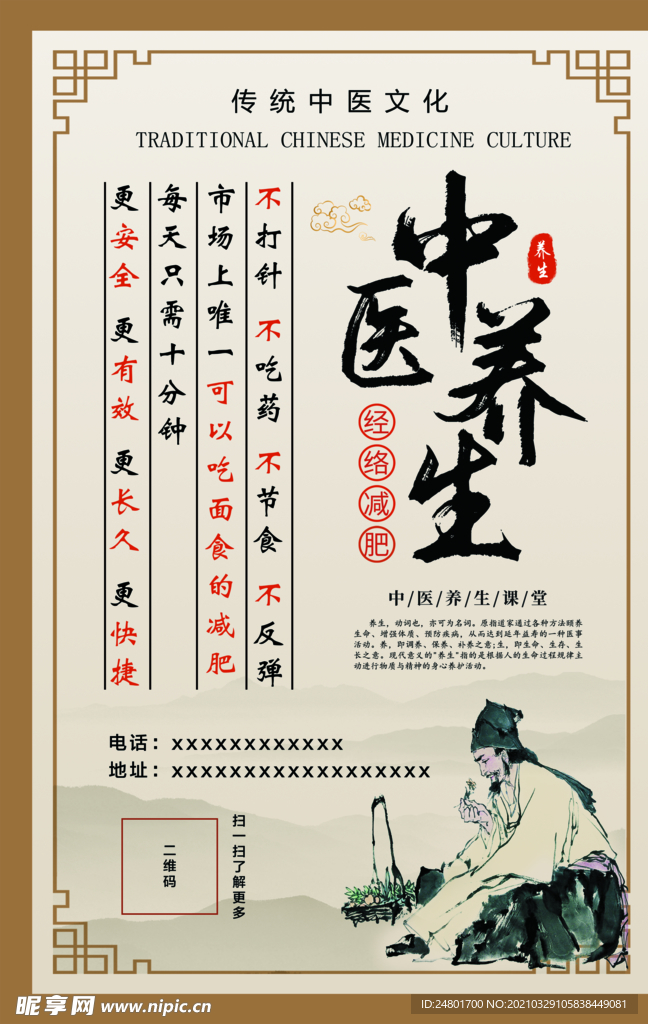 传统中医文化
TRADITIONAL CHINESE MEDICINE CULTURE
中医养生
养生
经络减肥
不打针 不吃药 不节食 不反弹
市场上唯一可以吃面食的减肥
每天只需十分钟
更安全 更有效 更长久 更快捷
中/医/养/生/课/堂
养生，动词也，亦可为名词。原指道家通过各种方法颐养
生命、增强体质、预防疾病，从而达到延年益寿的一种医事
活动。养，即调养、保养、补养之意；生，即生命、生存、生
长之意。现代意义的“养生”指的是根据人的生命过程规律主
动进行物质与精神的身心养护活动。
电话：xxxxxxxxxxxx
地址：xxxxxxxxxxxxxxxxxx
二维码
扫一扫了解更多
昵享网 www.nipic.cn
ID:24801700 NO:20210329105838449081